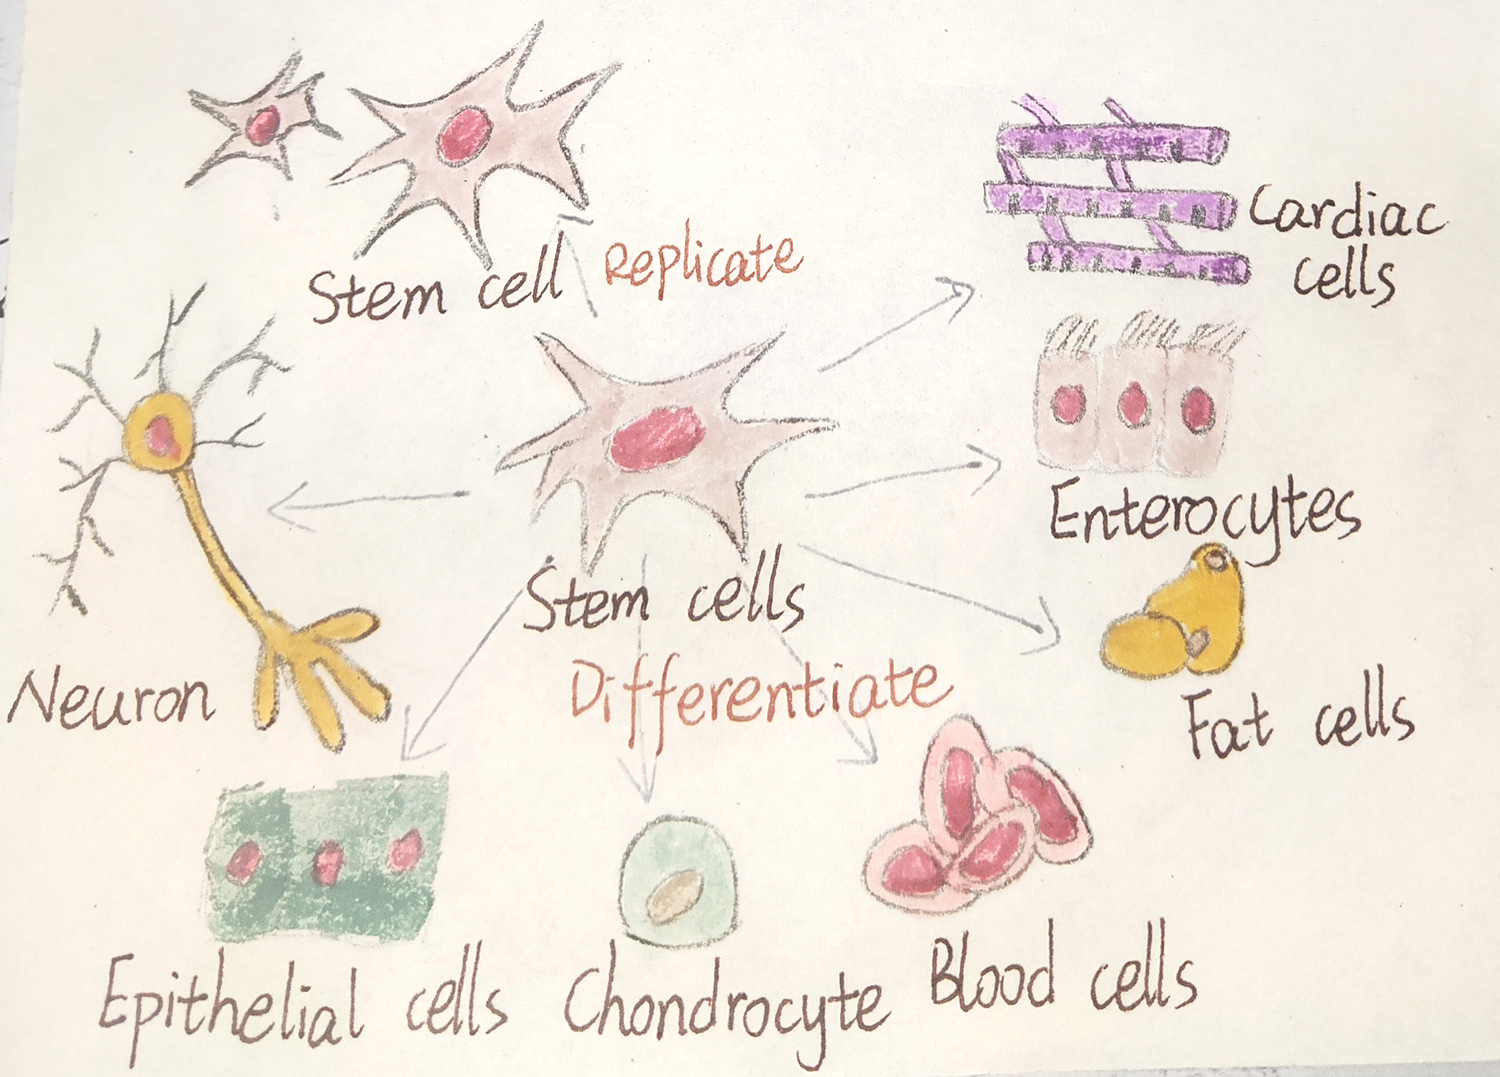 Stem cell
Replicate
Cardiac
cells
Enterocytes
Stem cells
Differentiate
Neuron
Fat cells
Epithelial cells
Chondrocyte
Blood cells